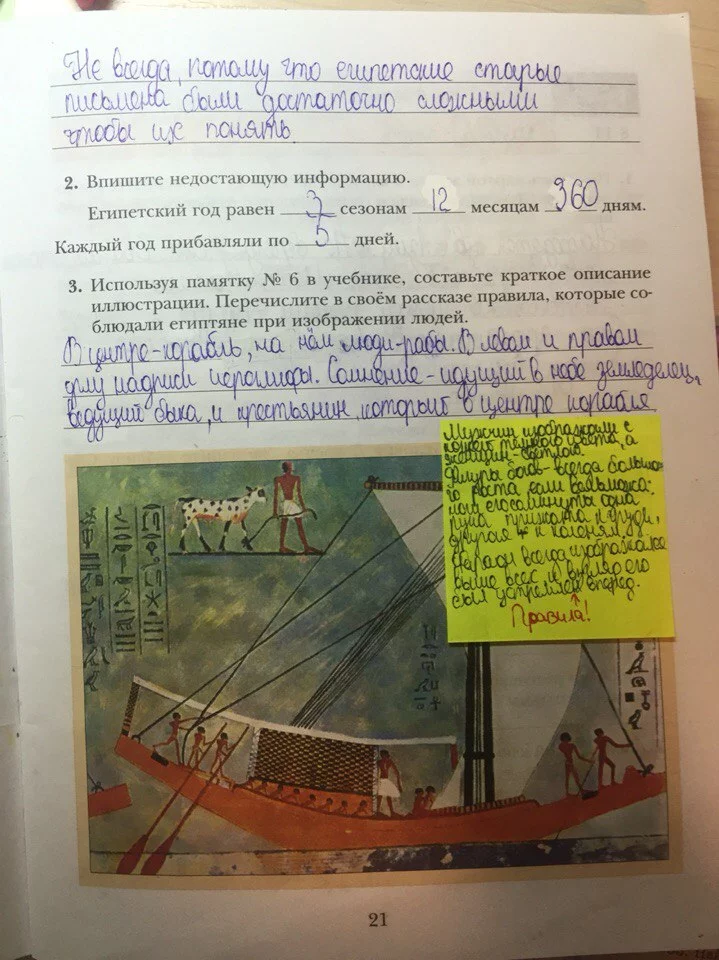 Не всегда, потому что египетские старые
письмена были достаточно сложными
чтобы их понять.
2. Впишите недостающую информацию.
Египетский год равен 3 сезонам 12 месяцам 360 дням.
Каждый год прибавляли по 5 дней.
3. Используя памятку № 6 в учебнике, составьте краткое описание
иллюстрации. Перечислите в своём рассказе правила, которые со-
блюдали египтяне при изображении людей.
В центре-корабль, на нём люди-рабы. В левом и правом
углу надписи иероглифы. Сомнение-идущий в небе земледелец,
ведущий быка, и крестьянин который в центре корабля
Мужчин изображали с
кожей тёмного цвета, а
женщин-светлого.
Фигуры богов-всегда большо-
го роста если вельможа-
руки сомкнуты одна
рука прижата к груди,
другая к коленям.
Фараон всегда изображался
выше всех и взгляд его
был устремлён вперёд.
Правила!
21